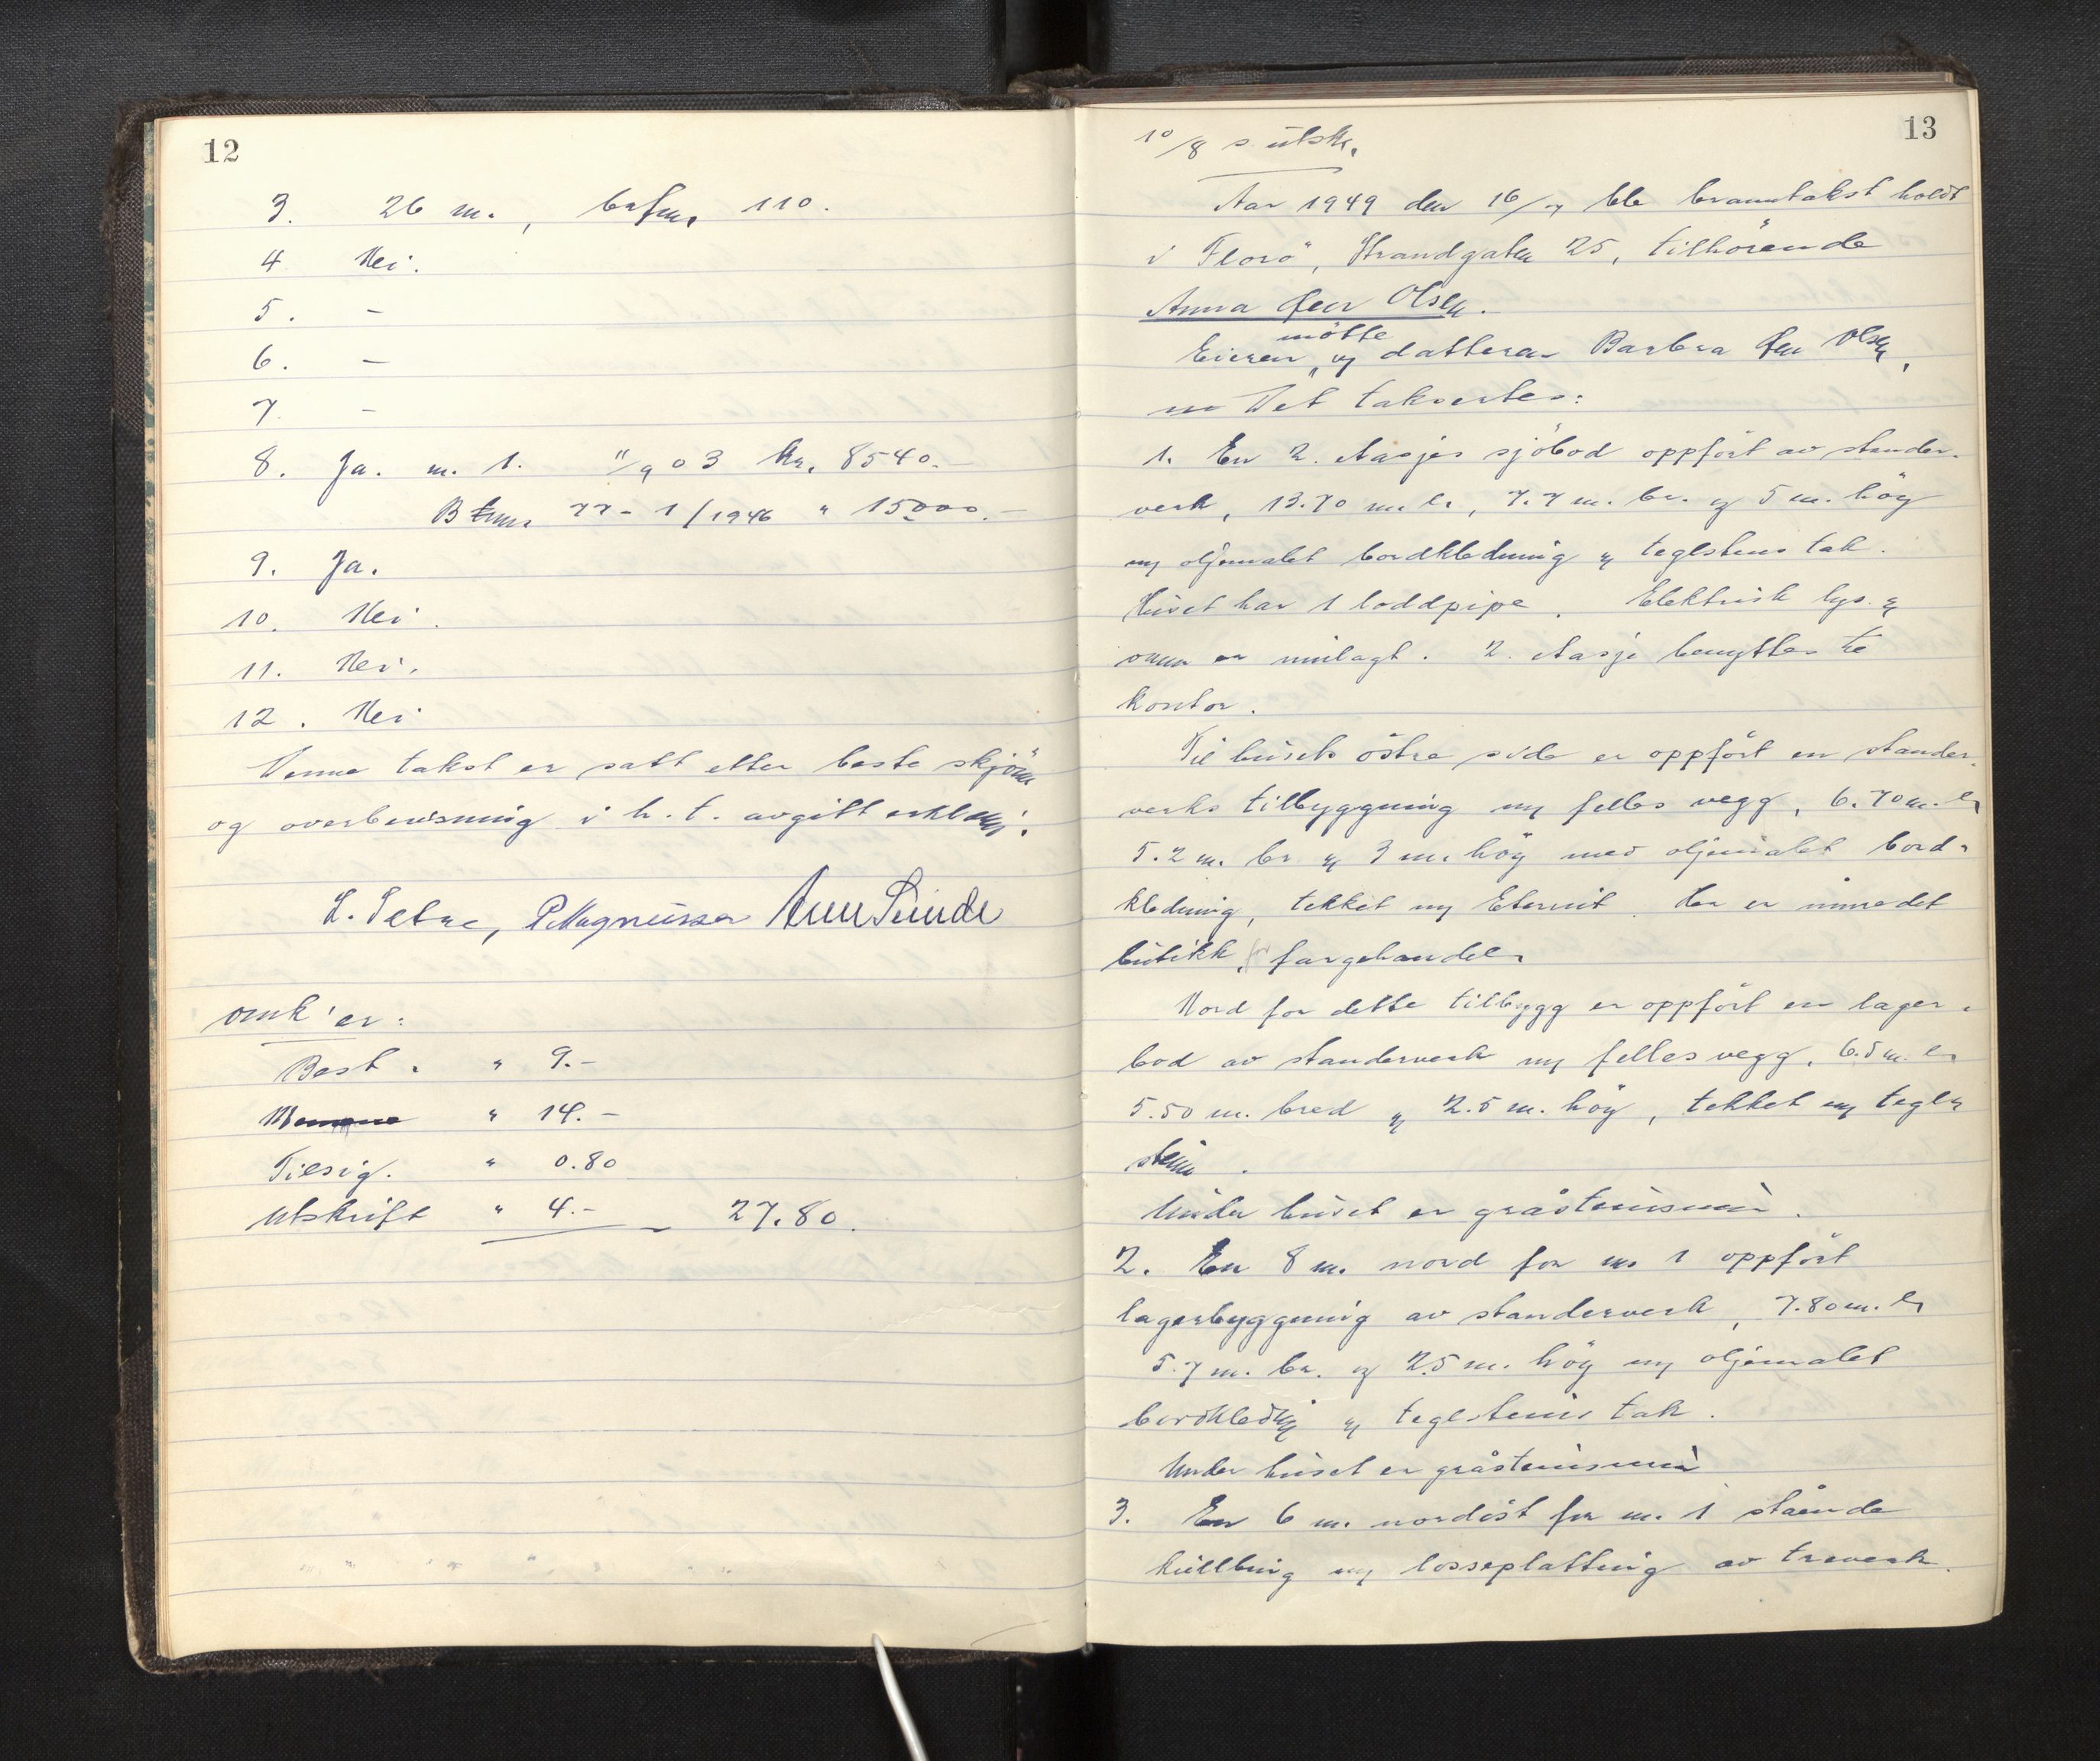 12
3. 26 m., brfm, 110.
4. Nei.
5. -
6. -
7. -
8. Ja. nr. 1. 11/9 03 kr. 8540.-
22-1/1946 " 15000.-
9. Ja.
10. Nei.
11. Nei.
12. Nei
Denne takst er satt etter beste skjönn
og overbevisning i h. t. avgitt erklæri.
L. Setre, P. Magnussen
Omk'er:
Best. " 9.-
" 14.-
Tilsig. " 0.80
Utskrift " 4.- - 27.80.
13
10/8 s. utskr.
Aar 1949 den 16/7 ble branntakst holdt
i Florö, Strandgaten 25, tilhörende
Anna Olsen.
mötte
Eieren og datteren Barbra Olsen,
Det takseres:
1. En 2. etasjes sjöbod oppfört av stender-
verk, 13.70 m. l., 7.7 m. br. og 5 m. höy
m/ oljemalet bordkledning og teglstens tak.
Huset har 1 loddpipe. Elektrisk lys og
ovn er innlagt. 2. etasje benyttes til
kontor.
Til husets östre side er oppfört en stender-
verks tilbyggning m/ felles vegg, 6.70 m. l.
5.2 m. br. og 3 m. höy med oljemalet bord-
kledning, tekket m/ Eternit. Her er innredet
butikk, fargehandel.
Nord for dette tilbygg er oppfört en lager-
bod av stenderverk m/ felles vegg, 6.5 m. l.
5.50 m. bred og 2.5 m. höy, tekket m/ tegl-
stein.
Under huset er gråstensmur.
2. En 8 m. nord for nr. 1 oppfört
lagerbyggning av stenderverk, 7.80 m. l.
5.7 m. br. og 2.5 m. höy m/ oljemalet
bordkledning og teglsteins tak.
Under huset er gråsteinsmur
3. En 6 m. nordöst for nr. 1 stående
kullbing m/ losseplatting av treverk.